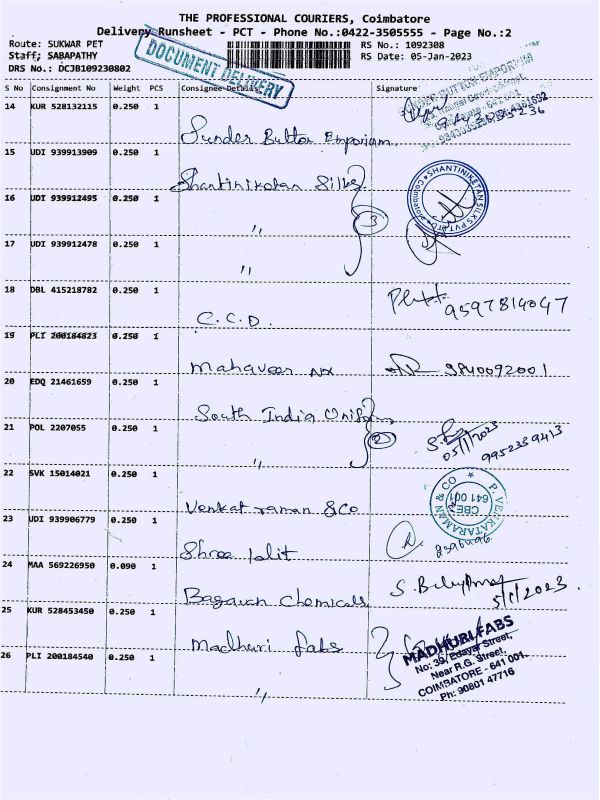 THE PROFESSIONAL COURIERS, Coimbatore
Delivery Runsheet - PCT - Phone No.:0422-3505555 - Page No.:2
Route: SUKWAR PET RS No.: 1092308
Staff; SABAPATHY RS Date: 05-Jan-2023
DRS No.: DCJB109230802
DOCUMENT DELIVERY
S No Consignment No Weight PCS Consignee Details Signature
14 KUR 528132115 0.250 1
Sunder Button Emporium
15 UDI 939913909 0.250 1
Shantiniketan Silks
SHANTINIKETAN SILKS PVT LTD Coimbatore
16 UDI 939912495 0.250 1
" 3
17 UDI 939912478 0.250 1
"
18 DBL 415218782 0.250 1
C.C.D. 9597814047
19 PLI 200184823 0.250 1
Mahaveer 9840092001
20 EDQ 21461659 0.250 1
South India Uniforms
21 POL 2207055 0.250 1
" 2 05/1/2023 9952389413
22 SVK 15014021 0.250 1
Venkat raman & Co
P. VENKATARAMAN & CO CBE 641 001
23 UDI 939906779 0.250 1
Shree lalit
24 MAA 569226950 0.090 1
Bagavan Chemicals 5/1/2023.
25 KUR 528453450 0.250 1
Madhuri fabs
MADHURI FABS
No: 39, Edayar Street,
Near R.G. Street,
COIMBATORE - 641 001.
Ph: 90801 47716
26 PLI 200184540 0.250 1
"